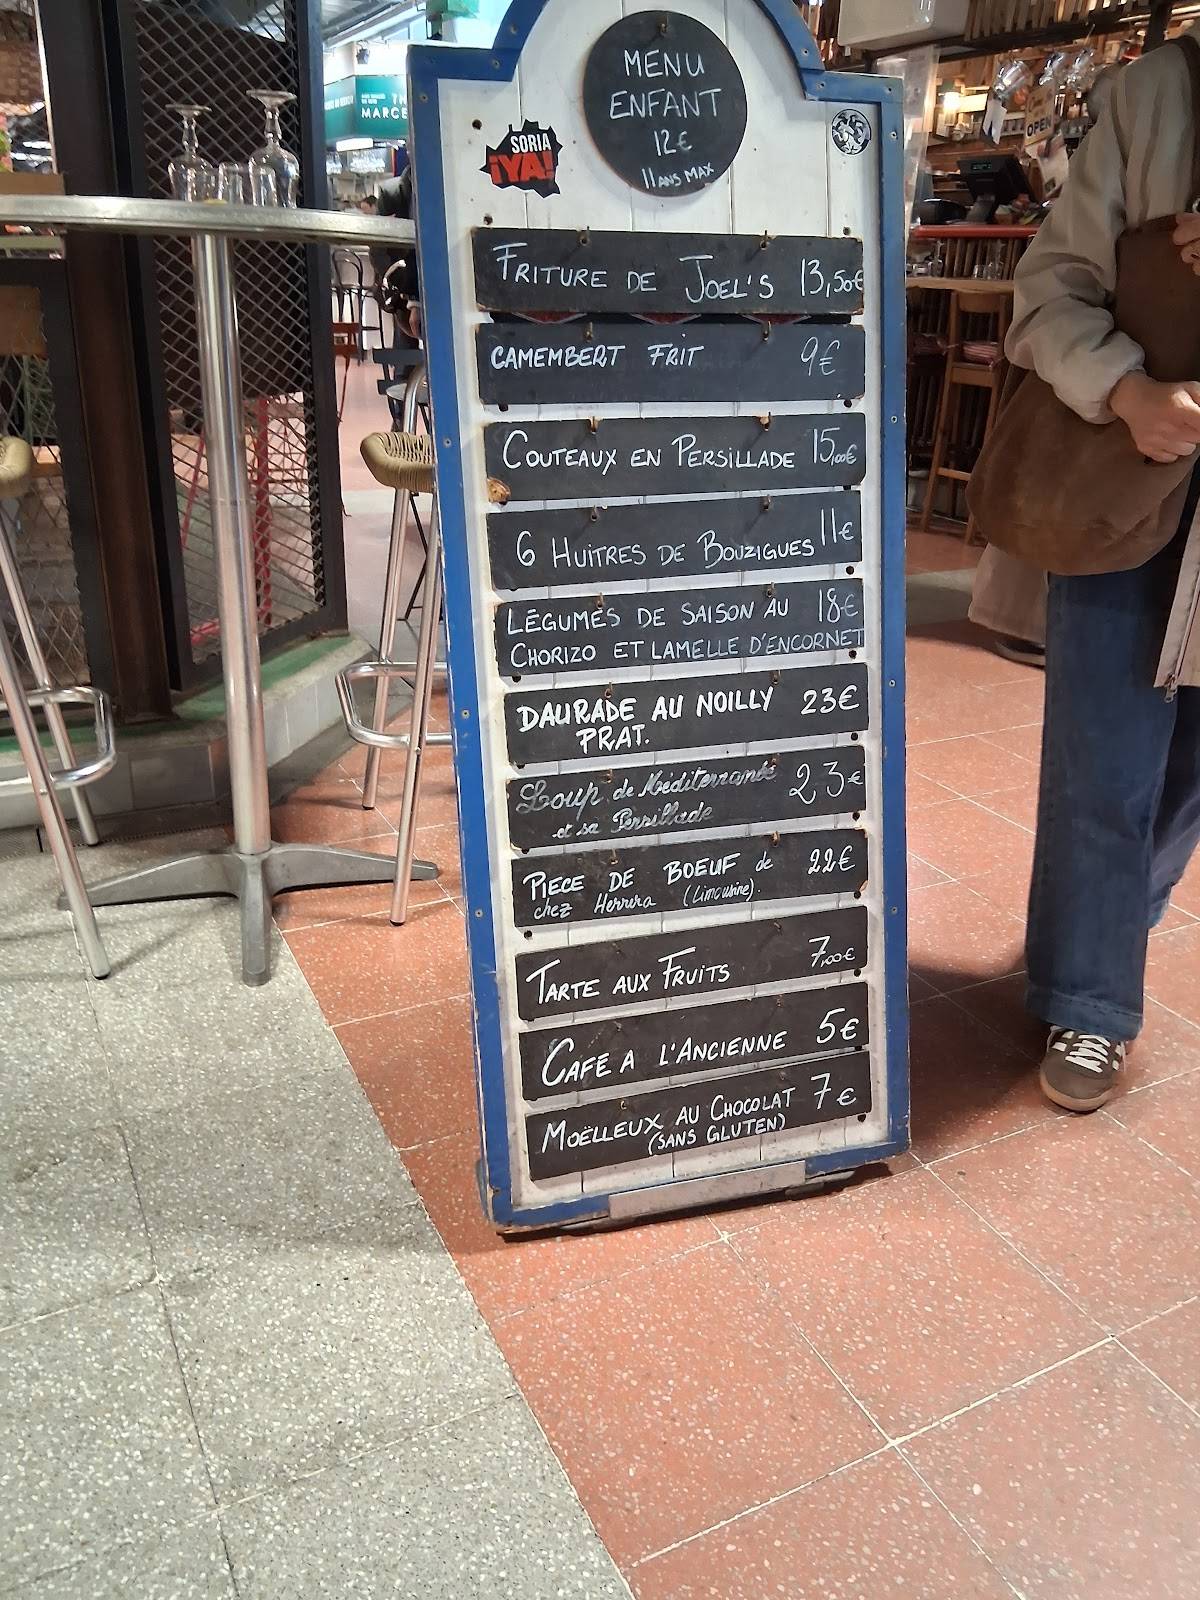 MENU
ENFANT
12€
11 ANS MAX
SORIA
¡YA!
MARCE
OPEN
FRITURE DE JOEL'S 13,50€
CAMEMBERT FRIT 9€
COUTEAUX EN PERSILLADE 15,00€
6 HUITRES DE BOUZIGUES 11€
LÉGUMES DE SAISON AU 18€
CHORIZO ET LAMELLE D'ENCORNET
DAURADE AU NOILLY 23€
PRAT.
Loup de Méditerranée 23€
et sa Persillade
PIECE DE BOEUF de 22€
chez Herrera (Limousine).
TARTE AUX FRUITS 7,00€
CAFÉ A L'ANCIENNE 5€
MOËLLEUX AU CHOCOLAT 7€
(SANS GLUTEN)